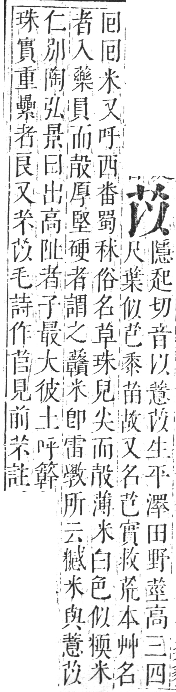 苡隱起切音以薏苡生平澤田野莖高三四
尺葉似芑黍苗故又名芑實救荒本艸名
回回米又呼西番蜀秫俗名草珠兒尖而殼薄米白色似稬米
者入藥員而殼厚堅硬者謂之贛米卽雷斆所云米與薏苡
仁別陶弘景曰出高阯者子最大彼土呼簳
珠實重纍者良又芣苡毛詩作苢見前芣註